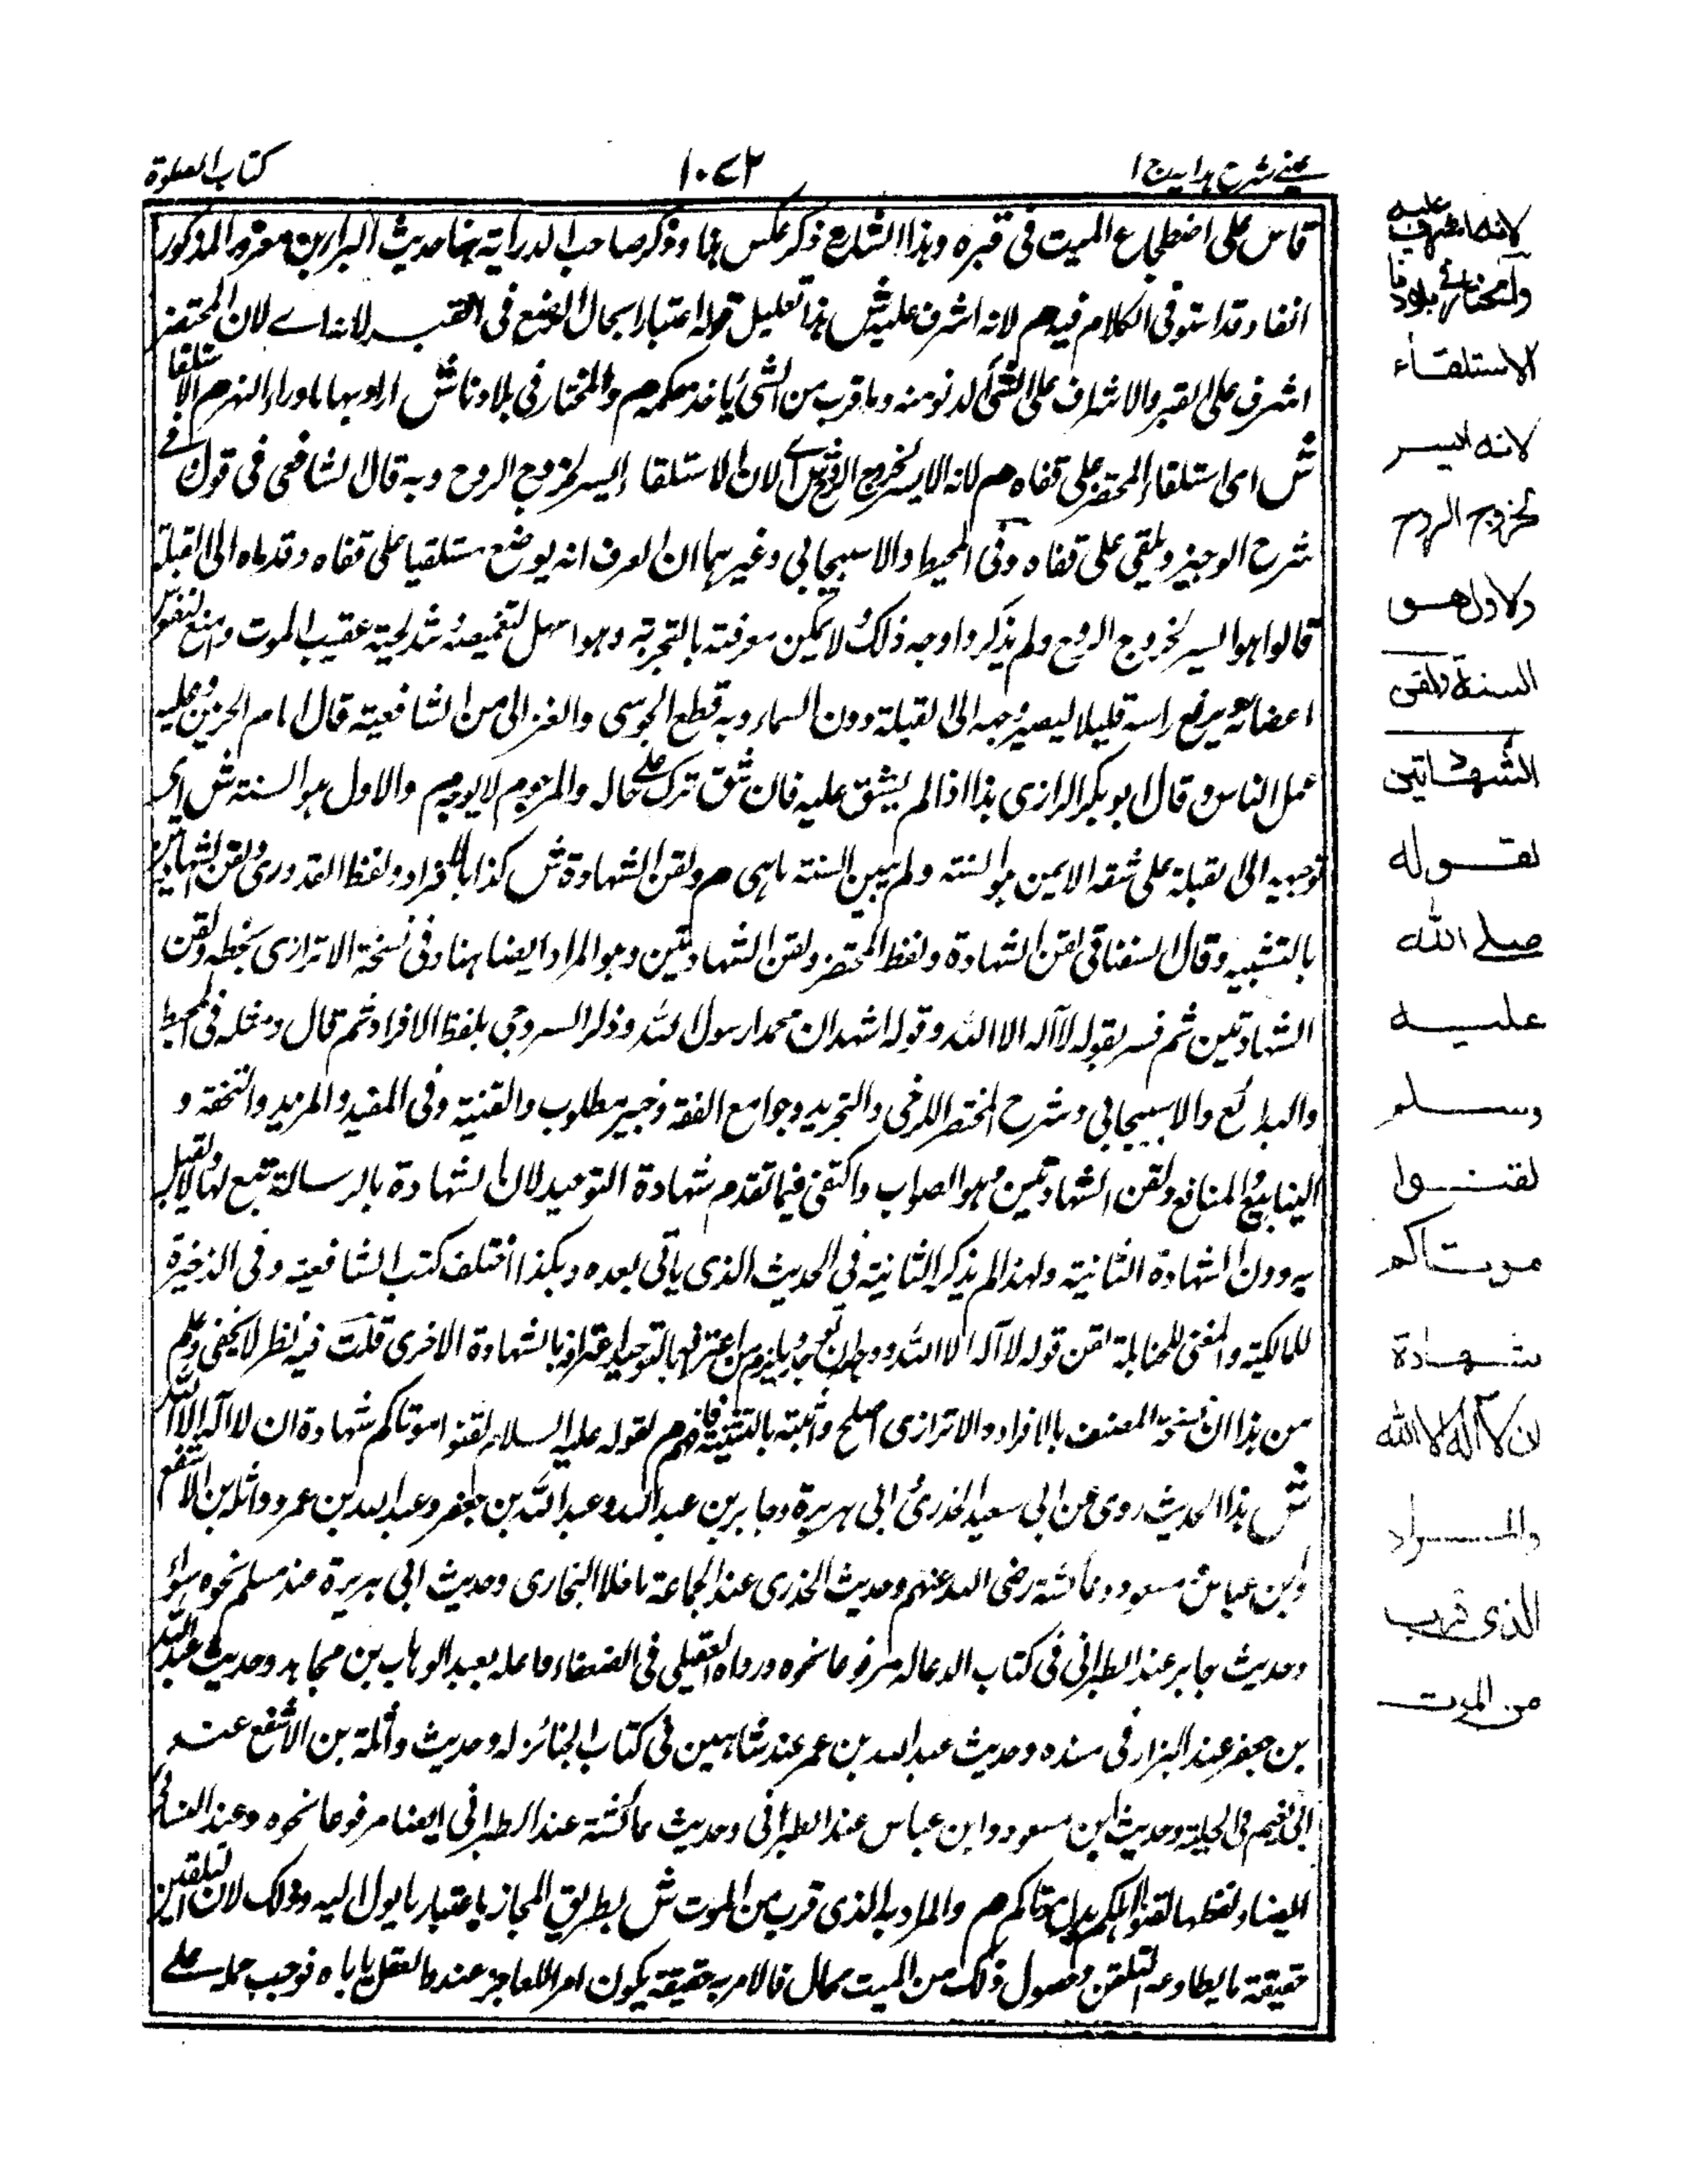 عيني شرح هداية ج ١
١٠٧٢
كتاب الصلوة
قاس على اضطجاع الميت فى قبره وهذا الشارح ذكر عكس هذا وذكر صاحب الدراية هنا حديث البراء بن معرور المذكور
انفا وقد استوفى الكلام فيه م لانه اشرف عليه ش هذا تعليل قوله اعتبارا بحال الوضع فى القبر لانه اے لان المحتضر
اشرف على القبر والاشراف على الشئ الدنو منه وما قرب من الشئ ياخذ حكمه م والمختار فى بلادنا ش اراد بها ماوراء النهر م الاستلقاء
ش اى استلقاء المحتضر على قفاه م لانه الايسر لخروج الروح ش اے لان الاستلقاء ايسر لخروج الروح وبه قال الشافعى فى قول فے
شرح الوجيز ويلقى على قفاه وفى المحيط والاسبيجابي وغيرهما ان العرف انه يوضع مستلقيا على قفاه وقدماه الى القبلة
قالوا هو ايسر لخروج الروح ولم يذكروا وجه ذلك ولا يمكن معرفته بالتجربة وهو اسهل لتغميضه وشد لحيته عقيب الموت وامنع لتقوس
اعضائه ويرفع راسه قليلا ليصير وجهه الى القبلة دون السماء وبه قطع الجوسى والغزالى من الشافعية قال امام الحرمين وعليه
عمل الناس وقال ابو بكر الرازى هذا اذا لم يشق عليه فان شق ترك على حاله والمرجوم لا يوجه م والاول هو السنة ش اى
توجيهه الى القبلة على شقه الايمن هو السنة ولم يبين السنة ما هى م ولقن الشهادة ش كذا بالافراد ولفظ القدورى ولقن الشهادتين
بالتثنية وقال السغناقى لقن الشهادة ولفظ المختصر ولقن الشهادتين وهو المراد ايضا هنا وفى نسخة الاترازى بخطه ولقن
الشهادتين ثم فسر بقوله لا اله الا الله وقوله اشهد ان محمدا رسول الله وذكر السروجي بلفظ الافراد ثم قال ومثله فى المحيط
والبدائع والاسبيجابي وشرح المختصر للكرخى والتجريد وجوامع الفقه وخير مطلوب والقنية وفى المفيد والمزيد والتحفة و
الينابيع والمنافع ولقن الشهادتين وهو الصواب واكتفى فيما تقدم شهادة التوحيد لان الشهادة بالرسالة تبع لها ولا تقبل
به دون الشهادة الثانية ولهذا لم يذكر الثانية فى الحديث الذى ياتى بعده وهكذا اختلف كتب الشافعية وفى الذخيرة
للمالكية والمغنى للحنابلة لقن قوله لا اله الا الله وحده ويلزم من اعترافه بالتوحيد اعترافه بالشهادة الاخرى قلت فيه نظر لا يخفى وعلم
من هذا ان نسخة المصنف بالافراد والاترازى اصلح واثبته بالتثنية فافهم م لقوله عليه السلام لقنوا موتاكم شهادة ان لا اله الا الله
ش هذا الحديث روى عن ابى سعيد الخدرى وابى هريرة وجابر بن عبد الله وعبد الله بن جعفر وعبد الله بن عمر وواثلة بن الاسقع
وابن عباس وابن مسعود وعائشة رضى الله عنهم وحديث الخدرى عند الجماعة ما خلا البخارى وحديث ابى هريرة عند مسلم نحوه سواء
وحديث جابر عند الطبرانى فى كتاب الدعاء له مرفوعا نحوه ورواه العقيلى فى الضعفاء واعله بعبد الوهاب بن مجاهد وحديث عبد الله
بن جعفر عند البزار فى مسنده وحديث عبد الله بن عمر عند شاهين فى كتاب الجنائز له وحديث واثلة بن الاسقع عند
ابى نعيم فى الحلية وحديث ابن مسعود وابن عباس عند الطبرانى وحديث عائشة عند الطبرانى ايضا مرفوعا نحوه وعند النسائى
ايضا ولفظها لقنوا هلكاكم بدل موتاكم م والمراد به الذى قرب من الموت ش بطريق المجاز باعتبار ما يول اليه وذلك لان التلقين
حقيقة ما يطاوعه التلقن وحصول ذلك من الميت محال فالامر به حقيقة يكون امرا للعاجز عنه والعقل ياباه فوجب حمله على
لانه اشرف عليه
والمختار في بلادنا
الاستلقاء
لانه ايسر
لخروج الروح
والاول هو
السنة ولقن
الشهادتين
لقوله
صلے الله
عليه
وسلم
لقنوا
موتاكم
شهادة
ان لا اله الا الله
والمراد
الذى قرب
من الموت